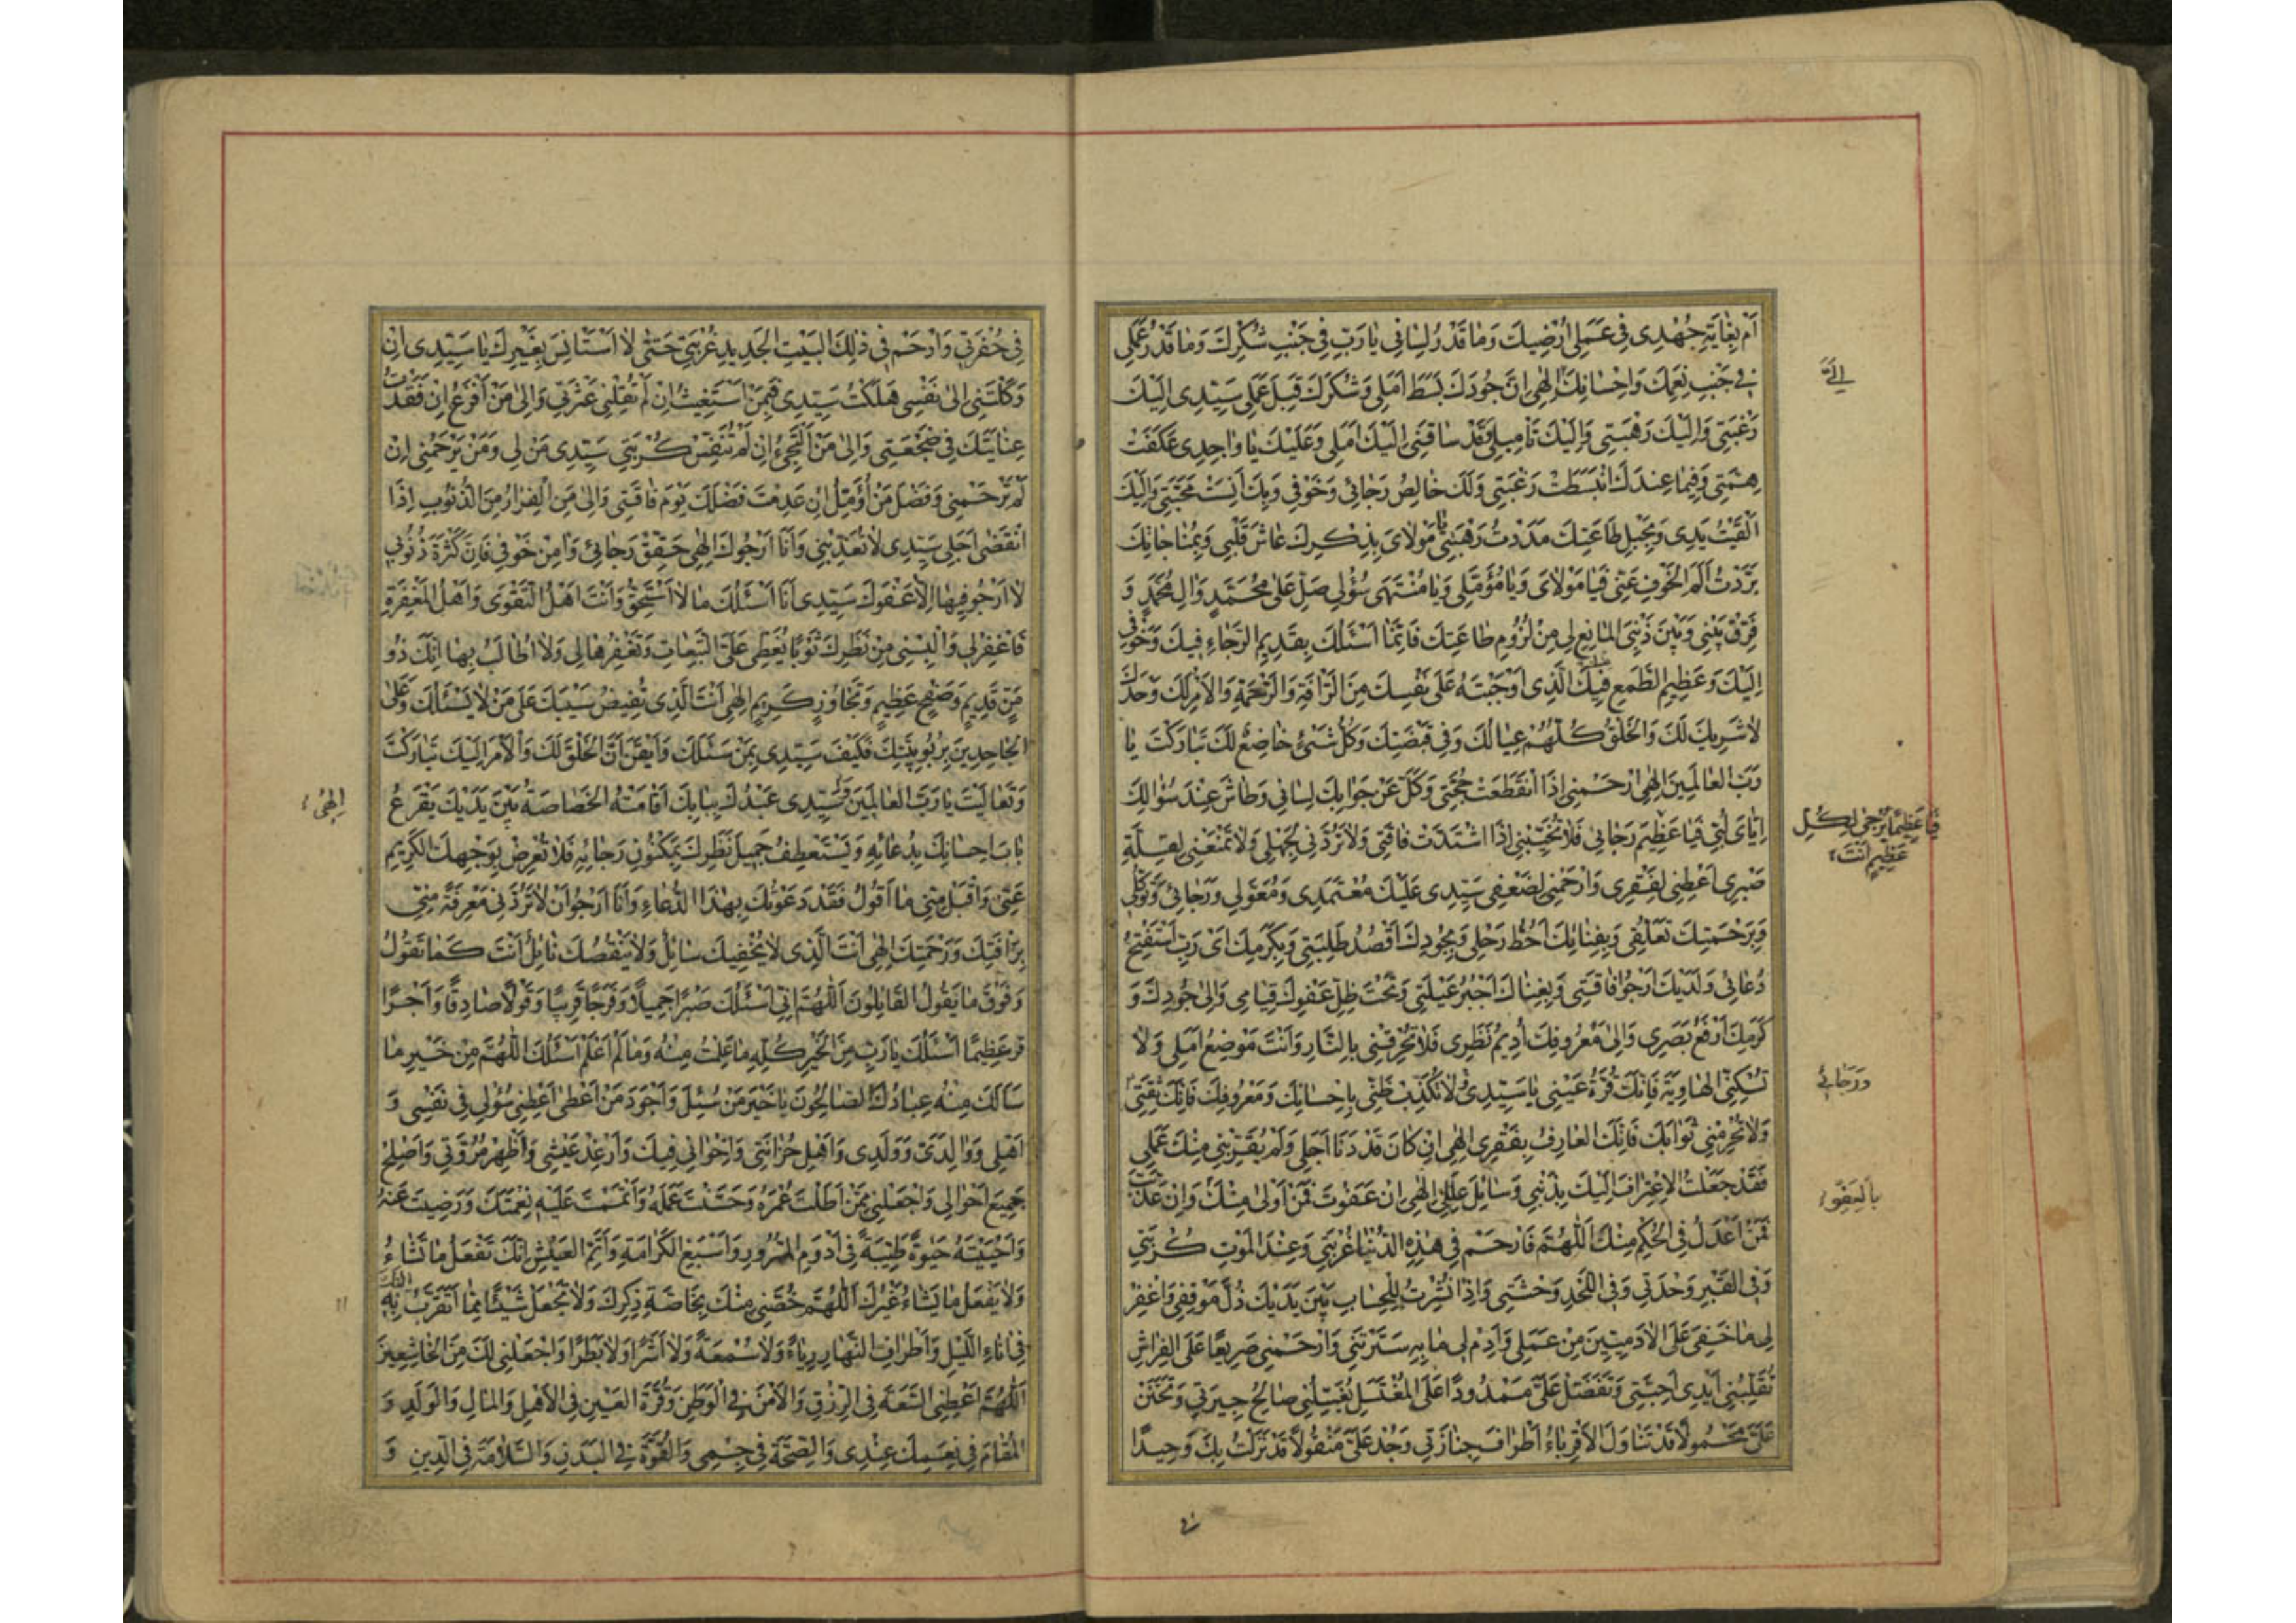 اَمْ بِغٰايَةِ جُهْدِى فى عَمَلى اُرْضيكَ وَمٰا قَدْرُ لِسٰانى يٰا رَبِّ فى جَنْبِ شُكْرِكَ وَمٰا قَدْرُ عَمَلى
فى جَنْبِ نِعَمِكَ وَاِحْسٰانِكَ اِلٰهى اِنَّ جُودَكَ بَسَطَ اَمَلى وَشُكْرَكَ قَبِلَ عَمَلى سَيِّدى اِلَيْكَ
اِلَىَّ
رَغْبَتى وَاِلَيْكَ رَهْبَتى وَاِلَيْكَ تَاْميلى وَقَدْ سٰاقَنى اِلَيْكَ اَمَلى وَعَلَيْكَ يٰا وٰاحِدى عَكَفَتْ
هِمَّتى وَفيمٰا عِنْدَكَ انْبَسَطَتْ رَغْبَتى وَلَكَ خٰالِصُ رَجٰائى وَخَوْفى وَبِكَ اَنِسَتْ مَحَبَّتى وَاِلَيْكَ
اَلْقَيْتُ يَدى وَبِحَبْلِ طٰاعَتِكَ مَدَدْتُ رَهْبَتى يٰا مَوْلاىَ بِذِكْرِكَ عٰاشَ قَلْبى وَبِمُنٰاجٰاتِكَ
بَرَّدْتُ اَلَمَ الْخَوْفِ عَنّى فَيٰا مَوْلاىَ وَيٰا مُؤَمَّلى وَيٰا مُنْتَهىٰ سُؤْلى صَلِّ عَلىٰ مُحَمَّدٍ وَاٰلِ مُحَمَّدٍ وَ
فَرِّقْ بَيْنى وَبَيْنَ ذَنْبِىَ الْمٰانِعِ لى مِنْ لُزُومِ طٰاعَتِكَ فَاِنَّمٰا اَسْئَلُكَ بِقَديمِ الرَّجٰاءِ فيكَ وَخَوْفى
اِلَيْكَ وَعَظيمِ الطَّمَعِ فيكَ الَّذى اَوْجَبْتَهُ عَلىٰ نَفْسِكَ مِنَ الرَّاْفَةِ وَالرَّحْمَةِ وَالاَمْرُ لَكَ وَحْدَكَ
لاٰ شَريكَ لَكَ وَالْخَلْقُ كُلُّهُمْ عِيٰالُكَ وَفى قَبْضَتِكَ وَكُلُّ شَىْءٍ خٰاضِعٌ لَكَ تَبٰارَكْتَ يٰا
رَبَّ الْعٰالَمينَ اِلٰهى ارْحَمْنى اِذَا انْقَطَعَتْ حُجَّتى وَكَلَّ عَنْ جَوٰابِكَ لِسٰانى وَطٰاشَ عِنْدَ سُؤٰالِكَ
اِيّٰاىَ لُبّى فَيٰا عَظيمَ رَجٰائى فَلاٰ تُخَيِّبْنى اِذَا اشْتَدَّتْ فٰاقَتى وَلاٰ تَرُدَّنى لِجَهْلى وَلاٰ تَمْنَعْنى لِقِلَّةِ
فَيٰا عَظيمًا يُرْجىٰ لِكُلِّ
عَظيمٍ اَنْتَ
صَبْرى اَعْطِنى لِفَقْرى وَارْحَمْنى لِضَعْفى سَيِّدى عَلَيْكَ مُعْتَمَدى وَمُعَوَّلى وَرَجٰائى وَتَوَكُّلى
وَبِرَحْمَتِكَ تَعَلُّقى وَبِفِنٰائِكَ اَحُطُّ رَحْلى وَبِجُودِكَ اَقْصُدُ طَلِبَتى وَبِكَرَمِكَ اَىْ رَبِّ اَسْتَفْتِحُ
دُعٰائى وَلَدَيْكَ اَرْجُو فٰاقَتى وَبِغِنٰاكَ اَجْبُرُ عَيْلَتى وَتَحْتَ ظِلِّ عَفْوِكَ قِيٰامى وَاِلىٰ جُودِكَ وَ
كَرَمِكَ اَرْفَعُ بَصَرى وَاِلىٰ مَعْرُوفِكَ اُديمُ نَظَرى فَلاٰ تُحْرِقْنى بِالنّٰارِ وَاَنْتَ مَوْضِعُ اَمَلى وَلاٰ
تُسْكِنِّى الْهٰاوِيَةَ فَاِنَّكَ قُرَّةُ عَيْنى يٰا سَيِّدى لاٰ تُكَذِّبْ ظَنّى بِاِحْسٰانِكَ وَمَعْرُوفِكَ فَاِنَّكَ ثِقَتى
وَرَجٰائى
وَلاٰ تَحْرِمْنى ثَوٰابَكَ فَاِنَّكَ الْعٰارِفُ بِفَقْرى اِلٰهى اِنْ كٰانَ قَدْ دَنٰا اَجَلى وَلَمْ يُقَرِّبْنى مِنْكَ عَمَلى
فَقَدْ جَعَلْتُ الاِعْتِرٰافَ اِلَيْكَ بِذَنْبى وَسٰائِلَ عِلَلى اِلٰهى اِنْ عَفَوْتَ فَمَنْ اَوْلىٰ مِنْكَ وَاِنْ عَذَّبْتَ
بِالْعَفْوِ
فَمَنْ اَعْدَلُ فِى الْحُكْمِ مِنْكَ اَللّٰهُمَّ فَارْحَمْ فى هٰذِهِ الدُّنْيٰا غُرْبَتى وَعِنْدَ الْمَوْتِ كُرْبَتى
وَفِى الْقَبْرِ وَحْدَتى وَفِى اللَّحْدِ وَحْشَتى وَاِذٰا نُشِرْتُ لِلْحِسٰابِ بَيْنَ يَدَيْكَ ذُلَّ مَوْقِفى وَاغْفِرْ
لى مٰا خَفِىَ عَلَى الاٰدَمِيّينَ مِنْ عَمَلى وَاَدِمْ لى مٰا بِهِ سَتَرْتَنى وَارْحَمْنى صَريعًا عَلَى الْفِرٰاشِ
تُقَلِّبُنى اَيْدى اَحِبَّتى وَتَفَضَّلْ عَلَىَّ مَمْدُودًا عَلَى الْمُغْتَسَلِ يُغَسِّلُنى صٰالِحُ جيرَتى وَتَحَنَّنْ
عَلَىَّ مَحْمُولاً قَدْ تَنٰاوَلَ الاَقْرِبٰاءُ اَطْرٰافَ جِنٰازَتى وَجُدْ عَلَىَّ مَنْقُولاً قَدْ نَزَلْتُ بِكَ وَحيدًا
فى
فى حُفْرَتى وَارْحَمْ فى ذٰلِكَ الْبَيْتِ الْجَديدِ غُرْبَتى حَتّىٰ لاٰ اَسْتَاْنِسَ بِغَيْرِكَ يٰا سَيِّدى اِنْ
وَكَلْتَنى اِلىٰ نَفْسى هَلَكْتُ سَيِّدى فَبِمَنْ اَسْتَغيثُ اِنْ لَمْ تُقِلْنى عَثْرَتى وَاِلىٰ مَنْ اَفْزَعُ اِنْ فَقَدْتُ
عِنٰايَتَكَ فى ضَجْعَتى وَاِلىٰ مَنْ اَلْتَجِئُ اِنْ لَمْ تُنَفِّسْ كُرْبَتى سَيِّدى مَنْ لى وَمَنْ يَرْحَمُنى اِنْ
لَمْ تَرْحَمْنى وَفَضْلَ مَنْ اُؤَمِّلُ اِنْ عَدِمْتُ فَضْلَكَ يَوْمَ فٰاقَتى وَاِلىٰ مَنِ الْفِرٰارُ مِنَ الذُّنُوبِ اِذَا
انْقَضىٰ اَجَلى سَيِّدى لاٰ تُعَذِّبْنى وَاَنَا اَرْجُوكَ اِلٰهى حَقِّقْ رَجٰائى وَاٰمِنْ خَوْفى فَاِنَّ كَثْرَةَ ذُنُوبى
لاٰ اَرْجُو فيهٰا اِلاّٰ عَفْوَكَ سَيِّدى اَنَا اَسْئَلُكَ مٰا لاٰ اَسْتَحِقُّ وَاَنْتَ اَهْلُ التَّقْوىٰ وَاَهْلُ الْمَغْفِرَةِ
فَاغْفِرْ لى وَاَلْبِسْنى مِنْ نَظَرِكَ ثَوْبًا يُغَطّى عَلَىَّ التَّبِعٰاتِ وَتَغْفِرُهٰا لى وَلاٰ اُطٰالَبُ بِهٰا اِنَّكَ ذُو
مَنٍّ قَديمٍ وَصَفْحٍ عَظيمٍ وَتَجٰاوُزٍ كَريمٍ اِلٰهى اَنْتَ الَّذى تُفيضُ سَيْبَكَ عَلىٰ مَنْ لاٰ يَسْئَلُكَ وَعَلَى
الْجٰاحِدينَ بِرُبُوبِيَّتِكَ فَكَيْفَ سَيِّدى بِمَنْ سَئَلَكَ وَاَيْقَنَ اَنَّ الْخَلْقَ لَكَ وَالاَمْرَ اِلَيْكَ تَبٰارَكْتَ
وَتَعٰالَيْتَ يٰا رَبَّ الْعٰالَمينَ سَيِّدى عَبْدُكَ بِبٰابِكَ اَقٰامَتْهُ الْخَصٰاصَةُ بَيْنَ يَدَيْكَ يَقْرَعُ
اِلٰهى
بٰابَ اِحْسٰانِكَ بِدُعٰائِهِ وَيَسْتَعْطِفُ جَميلَ نَظَرِكَ بِمَكْنُونِ رَجٰائِهِ فَلاٰ تُعْرِضْ بِوَجْهِكَ الْكَريمِ
عَنّى وَاقْبَلْ مِنّى مٰا اَقُولُ فَقَدْ دَعَوْتُكَ بِهٰذَا الدُّعٰاءِ وَاَنَا اَرْجُو اَنْ لاٰ تَرُدَّنى مَعْرِفَةً مِنّى
بِرَاْفَتِكَ وَرَحْمَتِكَ اِلٰهى اَنْتَ الَّذى لاٰ يُحْفيكَ سٰائِلٌ وَلاٰ يَنْقُصُكَ نٰائِلٌ اَنْتَ كَمٰا تَقُولُ
وَفَوْقَ مٰا يَقُولُ الْقٰائِلُونَ اَللّٰهُمَّ اِنّى اَسْئَلُكَ صَبْرًا جَميلاً وَفَرَجًا قَريبًا وَقَوْلاً صٰادِقًا وَاَجْرًا
عَظيمًا اَسْئَلُكَ يٰا رَبِّ مِنَ الْخَيْرِ كُلِّهِ مٰا عَلِمْتُ مِنْهُ وَمٰا لَمْ اَعْلَمْ اَسْئَلُكَ اللّٰهُمَّ مِنْ خَيْرِ مٰا
سَاَلَكَ مِنْهُ عِبٰادُكَ الصّٰالِحُونَ يٰا خَيْرَ مَنْ سُئِلَ وَاَجْوَدَ مَنْ اَعْطىٰ اَعْطِنى سُؤْلى فى نَفْسى وَ
اَهْلى وَوٰالِدَىَّ وَوَلَدى وَاَهْلِ حُزٰانَتى وَاِخْوٰانى فيكَ وَاَرْغِدْ عَيْشى وَاَظْهِرْ مُرُوَّتى وَاَصْلِحْ
جَميعَ اَحْوٰالى وَاجْعَلْنى مِمَّنْ اَطَلْتَ عُمْرَهُ وَحَسَّنْتَ عَمَلَهُ وَاَتْمَمْتَ عَلَيْهِ نِعْمَتَكَ وَرَضيتَ عَنْهُ
وَاَحْيَيْتَهُ حَيٰوةً طَيِّبَةً فى اَدْوَمِ السُّرُورِ وَاَسْبَغِ الْكَرٰامَةِ وَاَتَمِّ الْعَيْشِ اِنَّكَ تَفْعَلُ مٰا تَشٰاءُ
وَلاٰ يَفْعَلُ مٰا يَشٰاءُ غَيْرُكَ اَللّٰهُمَّ خُصَّنى مِنْكَ بِخٰاصَّةِ ذِكْرِكَ وَلاٰ تَجْعَلْ شَيْئًا مِمّٰا اَتَقَرَّبُ بِهِ
فى اٰنٰاءِ اللَّيْلِ وَاَطْرٰافِ النَّهٰارِ رِيٰاءً وَلاٰ سُمْعَةً وَلاٰ اَشَرًا وَلاٰ بَطَرًا وَاجْعَلْنى لَكَ مِنَ الْخٰاشِعينَ
اَللّٰهُمَّ اَعْطِنِى السَّعَةَ فِى الرِّزْقِ وَالاَمْنَ فِى الْوَطَنِ وَقُرَّةَ الْعَيْنِ فِى الاَهْلِ وَالْمٰالِ وَالْوَلَدِ وَ
الْمُقٰامَ فى نِعَمِكَ عِنْدى وَالصِّحَّةَ فى جِسْمى وَالْقُوَّةَ فِى الْبَدَنِ وَالسَّلاٰمَةَ فِى الدّينِ وَ